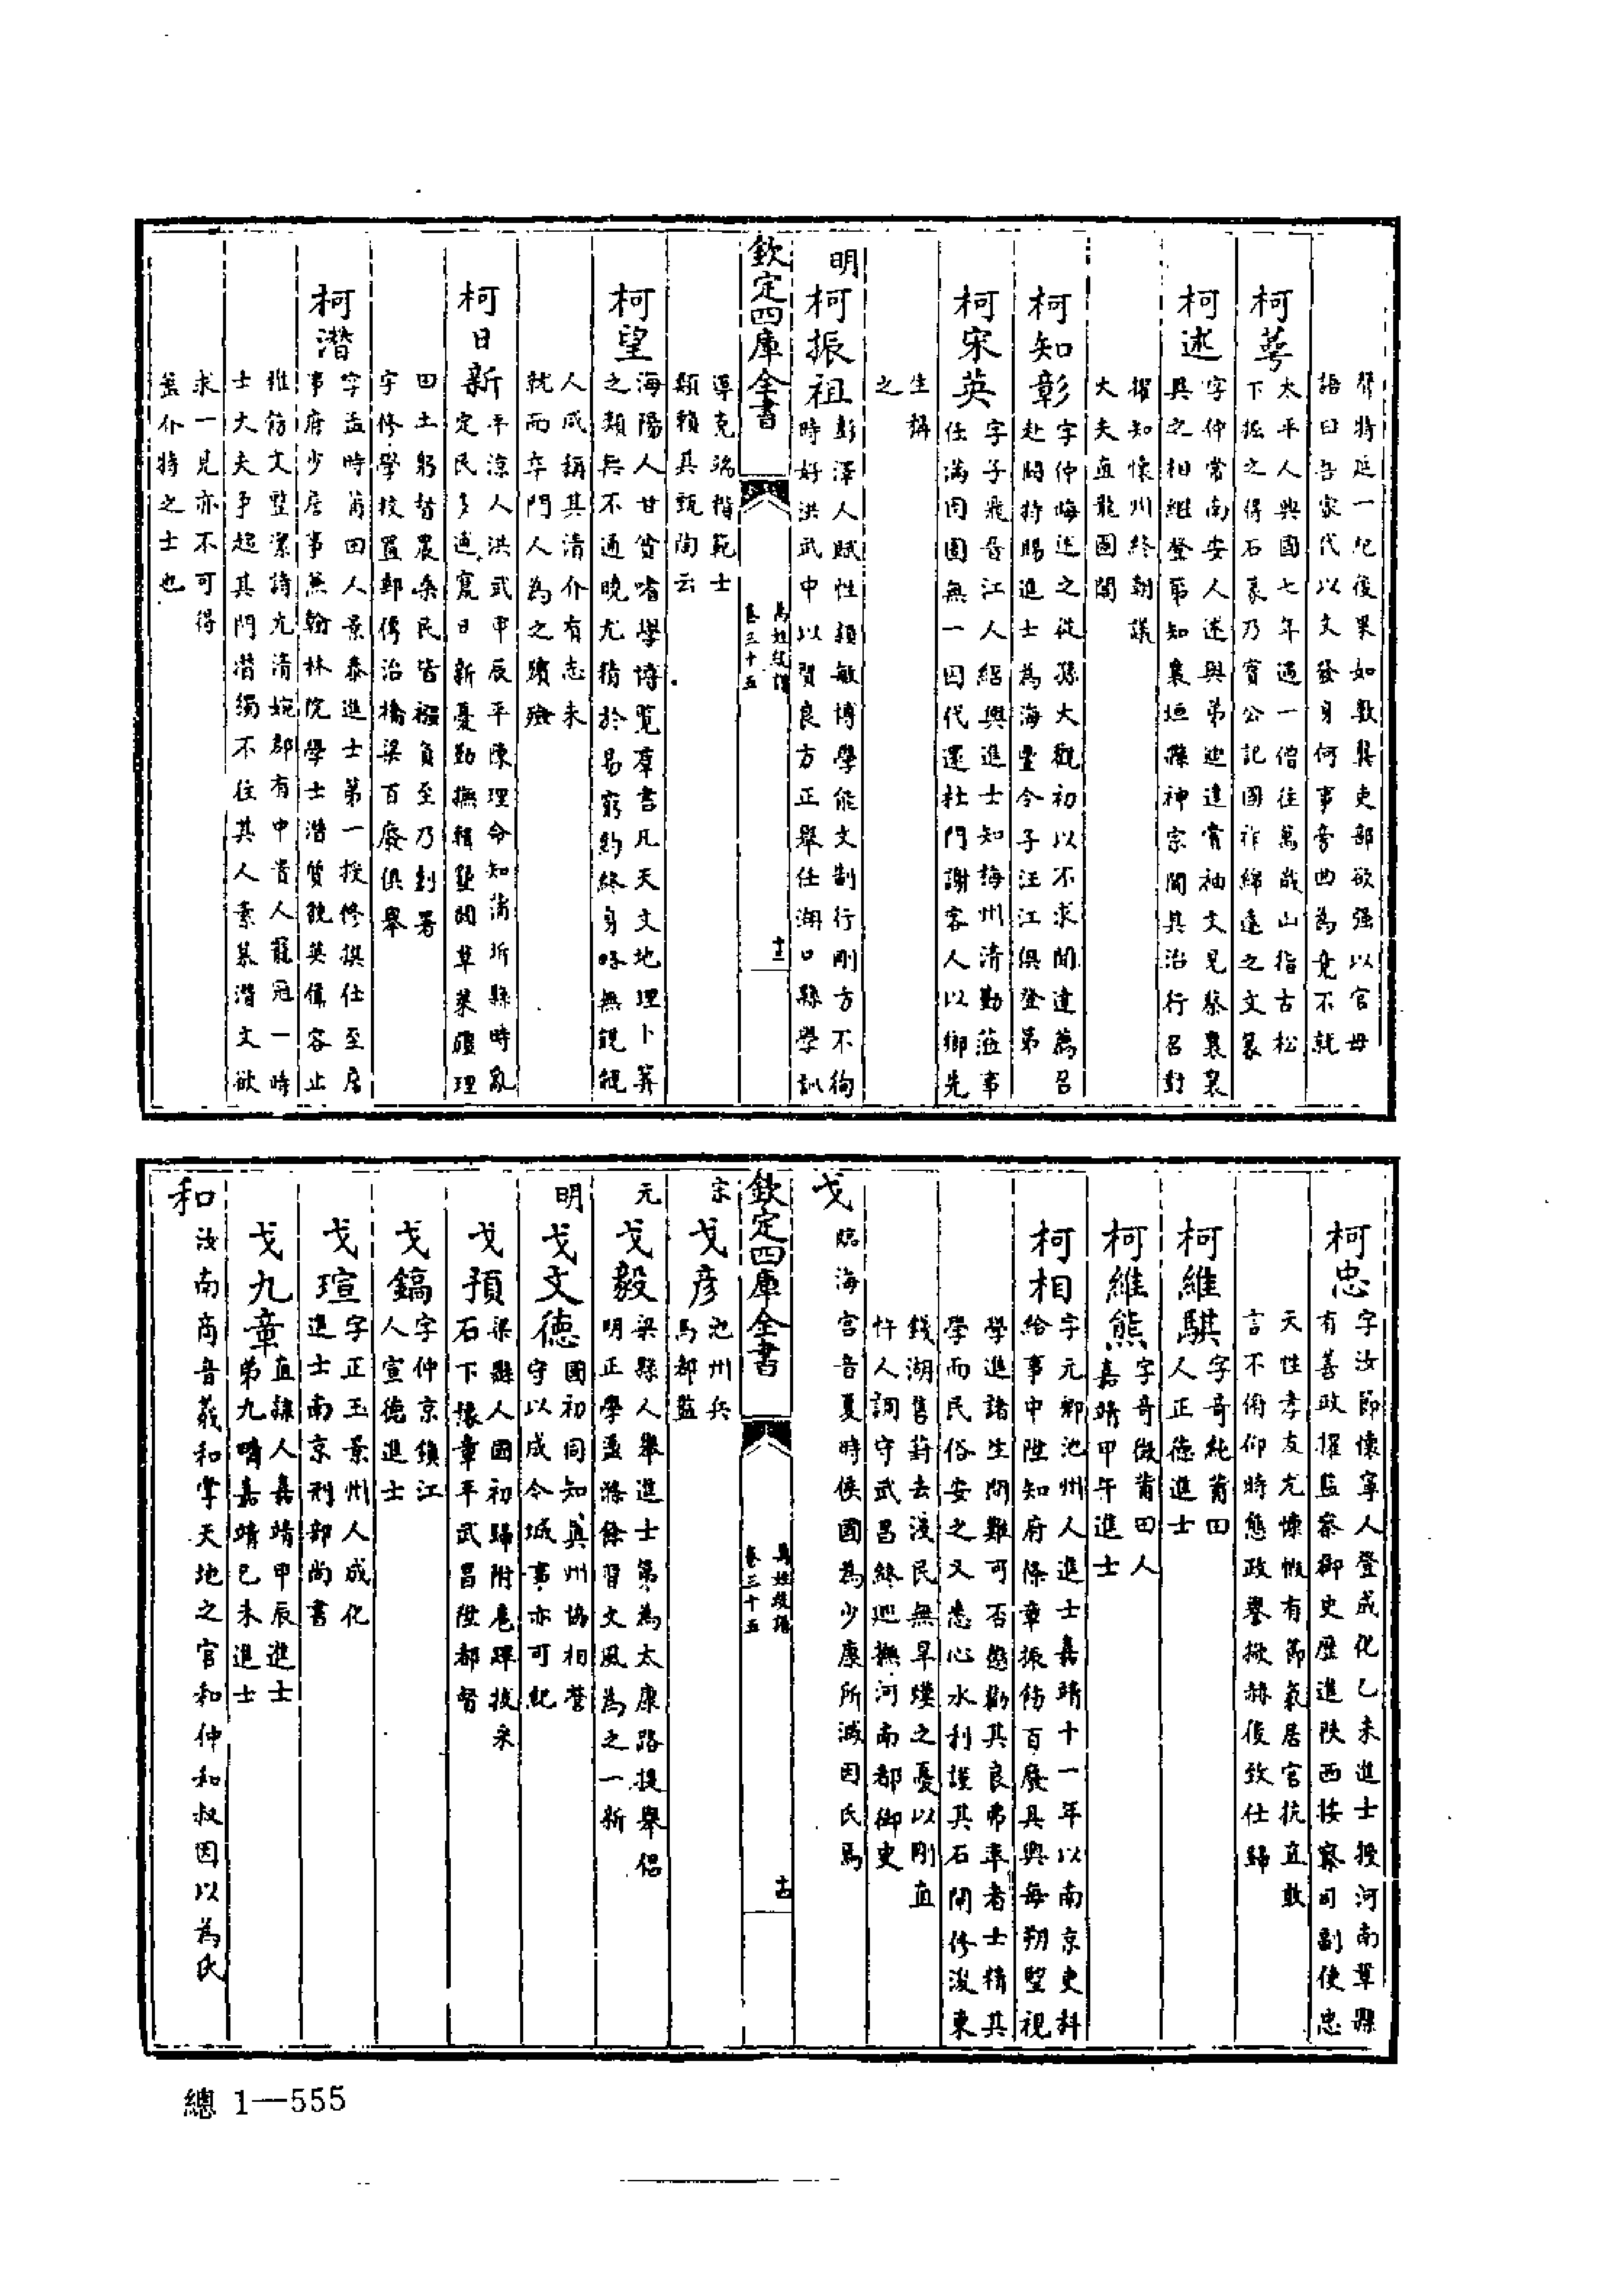 聲特延一紀後果如數龔吏部欲强以官毋
語曰吾家代以文發身何事旁曲為竟不就
柯萼太平人興國七年遇一僧往萬歲山指古松
下掘之得石篆乃寶公記國祚綿遠之文篆
柯述字仲常南安人述與弟迪進賓袖文見蔡襄襄
異之相繼登第知襄垣縣神宗聞其治行召對
擢知懷州終朝議
大夫直龍圖閣
柯知彰字仲晦述之從孫大觀初以不求聞達薦召
赴闕特賜進士為海豐令子汪江俱登第
柯宋英字子飛晉江人紹興進士知梅州清勤蒞事
任滿囹圄無一囚代還杜門謝客人以鄉先
生稱
之
明
柯振祖彭澤人賦性穎敏博學能文制行剛方不徇
時好洪武中以賢良方正舉任湖口縣學訓
欽定四庫全書
萬姓統譜
卷三十五
十三
導克端楷範士
類賴其甄陶云
柯望海陽人甘貧嗜學博覽羣書凡天文地理卜筭
之類無不通曉尤精於易窮約終身略無覬覦
人咸稱其清介有志未
就而卒門人為之殯殮
柯日新平涼人洪武甲辰平陳理命知蒲圻縣時亂
定民多逋竄日新憂勤撫輯墾闢草萊疆理
田土躬督農桑民皆襁負至乃創署
宇修學校置郵傳治橋梁百廢俱舉
柯潛字孟時莆田人景泰進士第一授修撰仕至詹
事府少詹事兼翰林院學士潛質貌英偉容止
雅飭文整潔詩尤清婉郡有中貴人寵冠一時
士大夫爭趨其門潛獨不往其人素慕潛文欲
求一見亦不可得
蓋介特之士也
柯忠字汝節懷寧人登成化乙未進士授河南鞏縣
有善政擢監察御史歷進陝西按察司副使忠
天性孝友尤慷慨有節氣居官抗直敢
言不俯仰時態政譽掀赫後致仕歸
柯維騏字奇純莆田
人正德進士
柯維熊字奇徵莆田人
嘉靖甲午進士
柯相字元卿池州人進士嘉靖十一年以南京吏科
給事中陞知府條章振飭百廢具興每朔望視
學進諸生問難可否懲勸其良弗率者士精其
學而民俗安之又悉心水利護其石閘修浚東
錢湖舊葑去淺民無旱煖之憂以剛直
忤人調守武昌終巡撫河南都御史
戈
臨海宮音夏時侯國為少康所滅因氏焉
欽定四庫全書
萬姓統譜
卷三十五
十四
宋
戈彥池州兵
馬都監
元
戈毅梁縣人舉進士第為太康路提舉倡
明正學盪滌餘習文風為之一新
明
戈文德國初同知真州協相營
守以成今城事亦可紀
戈預梁縣人國初歸附扈蹕拔采
石下懷章平武昌陞都督
戈鎬字仲京鎮江
人宣德進士
戈瑄字正玉景州人成化
進士南京刑部尚書
戈九章直隸人嘉靖甲辰進士
弟九疇嘉靖己未進士
和
汝南商音羲和掌天地之官和仲和叔因以為氏
總 1—555